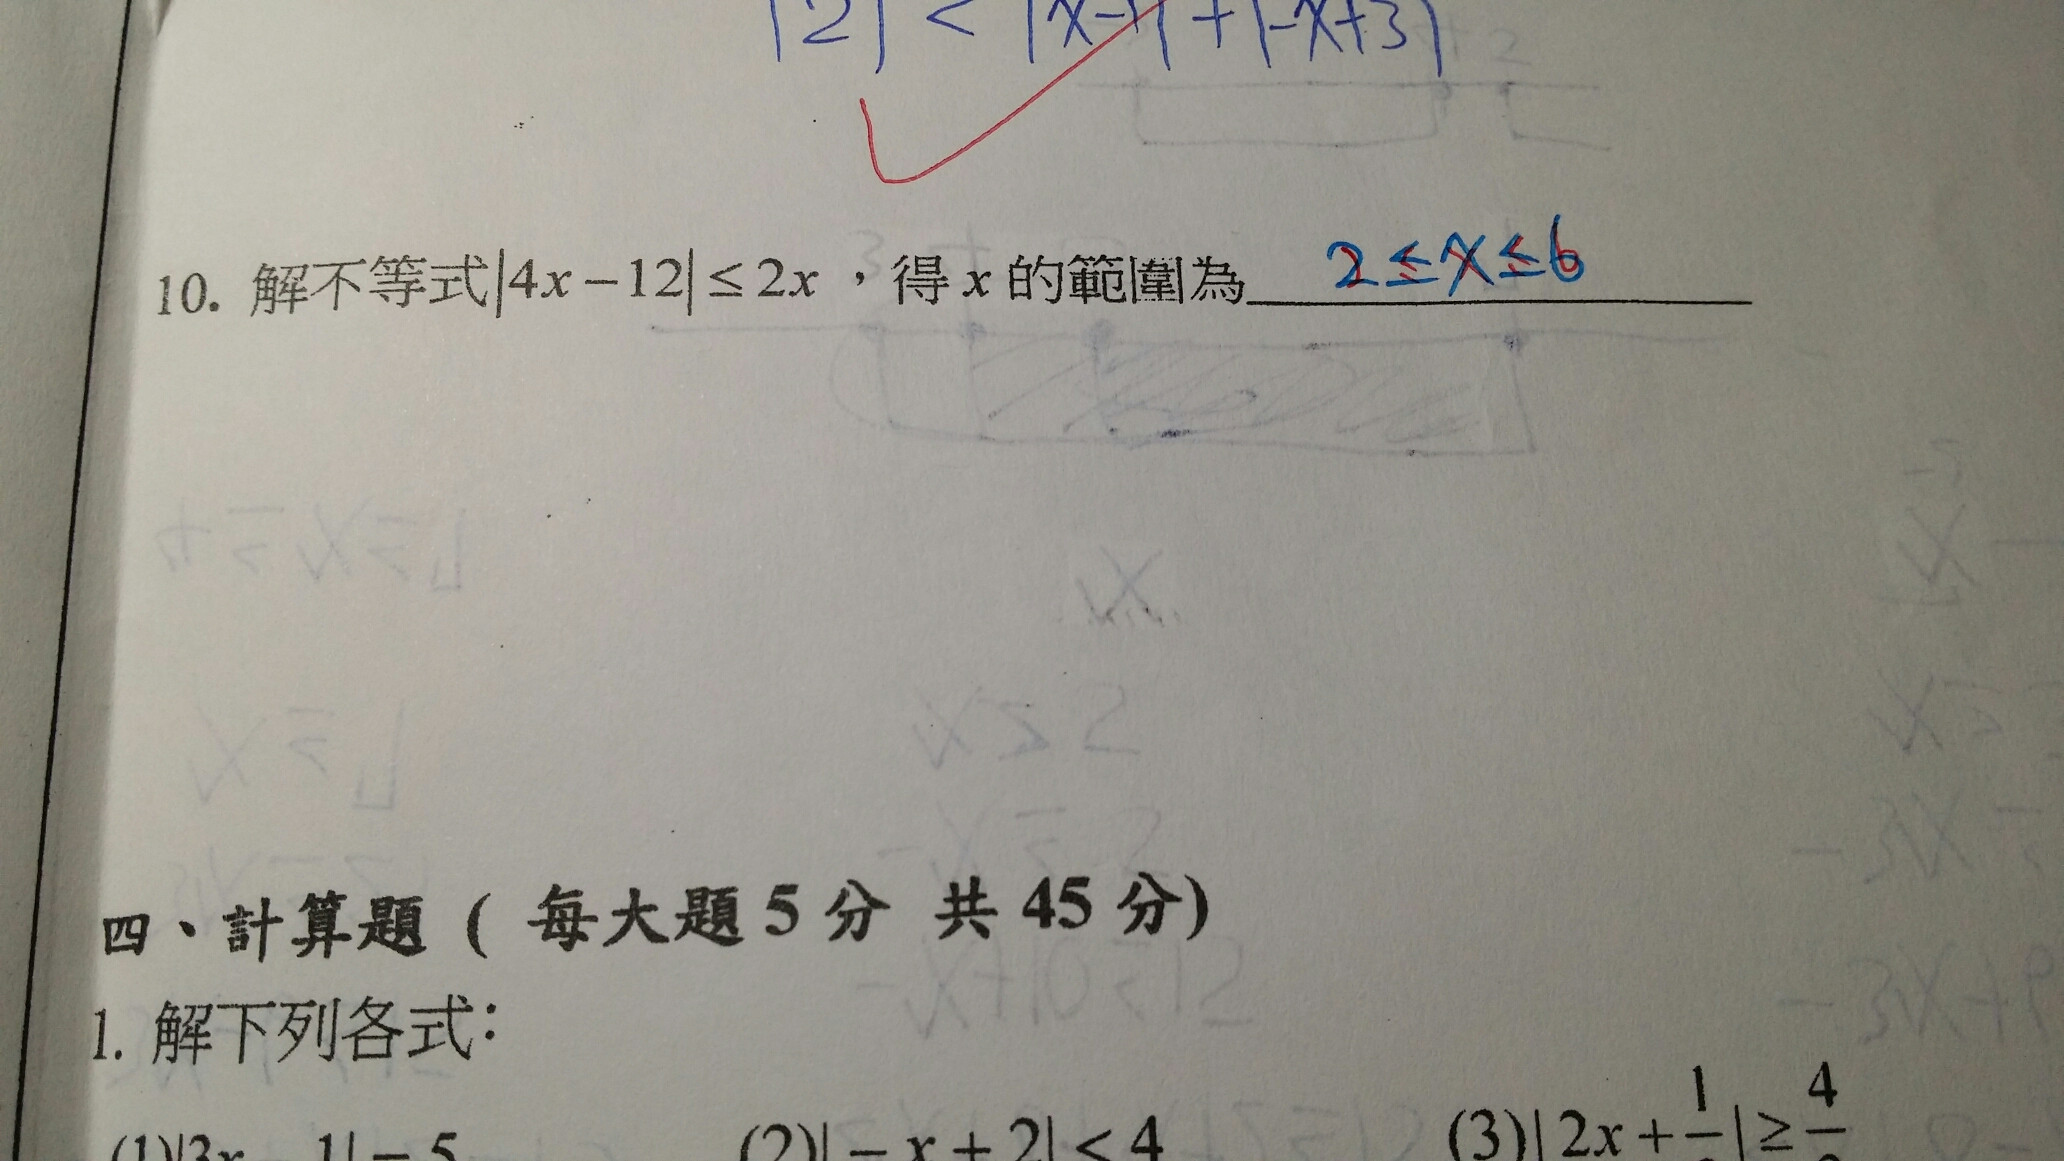 |2| < |x-1| + |-x+3|
10. 解不等式|4x-12|≤2x，得x的範圍為 2≤x≤6
四、計算題 ( 每大題5分 共45分)
1. 解下列各式:
(1)|3x-1|=5 (2)|-x+2|<4 (3)|2x+1|≥4